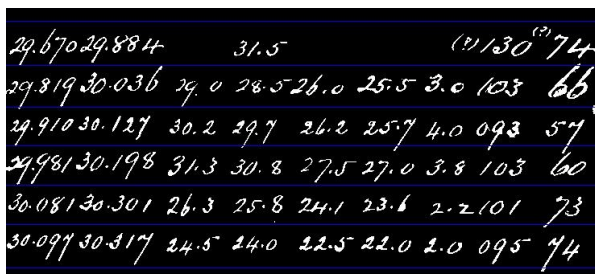 29.670 29.884 31.5 (?) 130 (?) 74
29.819 30.036 29.0 28.5 26.0 25.5 3.0 103 66
29.910 30.127 30.2 29.7 26.2 25.7 4.0 093 57
29.981 30.198 31.3 30.8 27.5 27.0 3.8 103 60
30.081 30.301 26.3 25.8 24.1 23.6 2.2 101 73
30.097 30.317 24.5 24.0 22.5 22.0 2.0 095 74